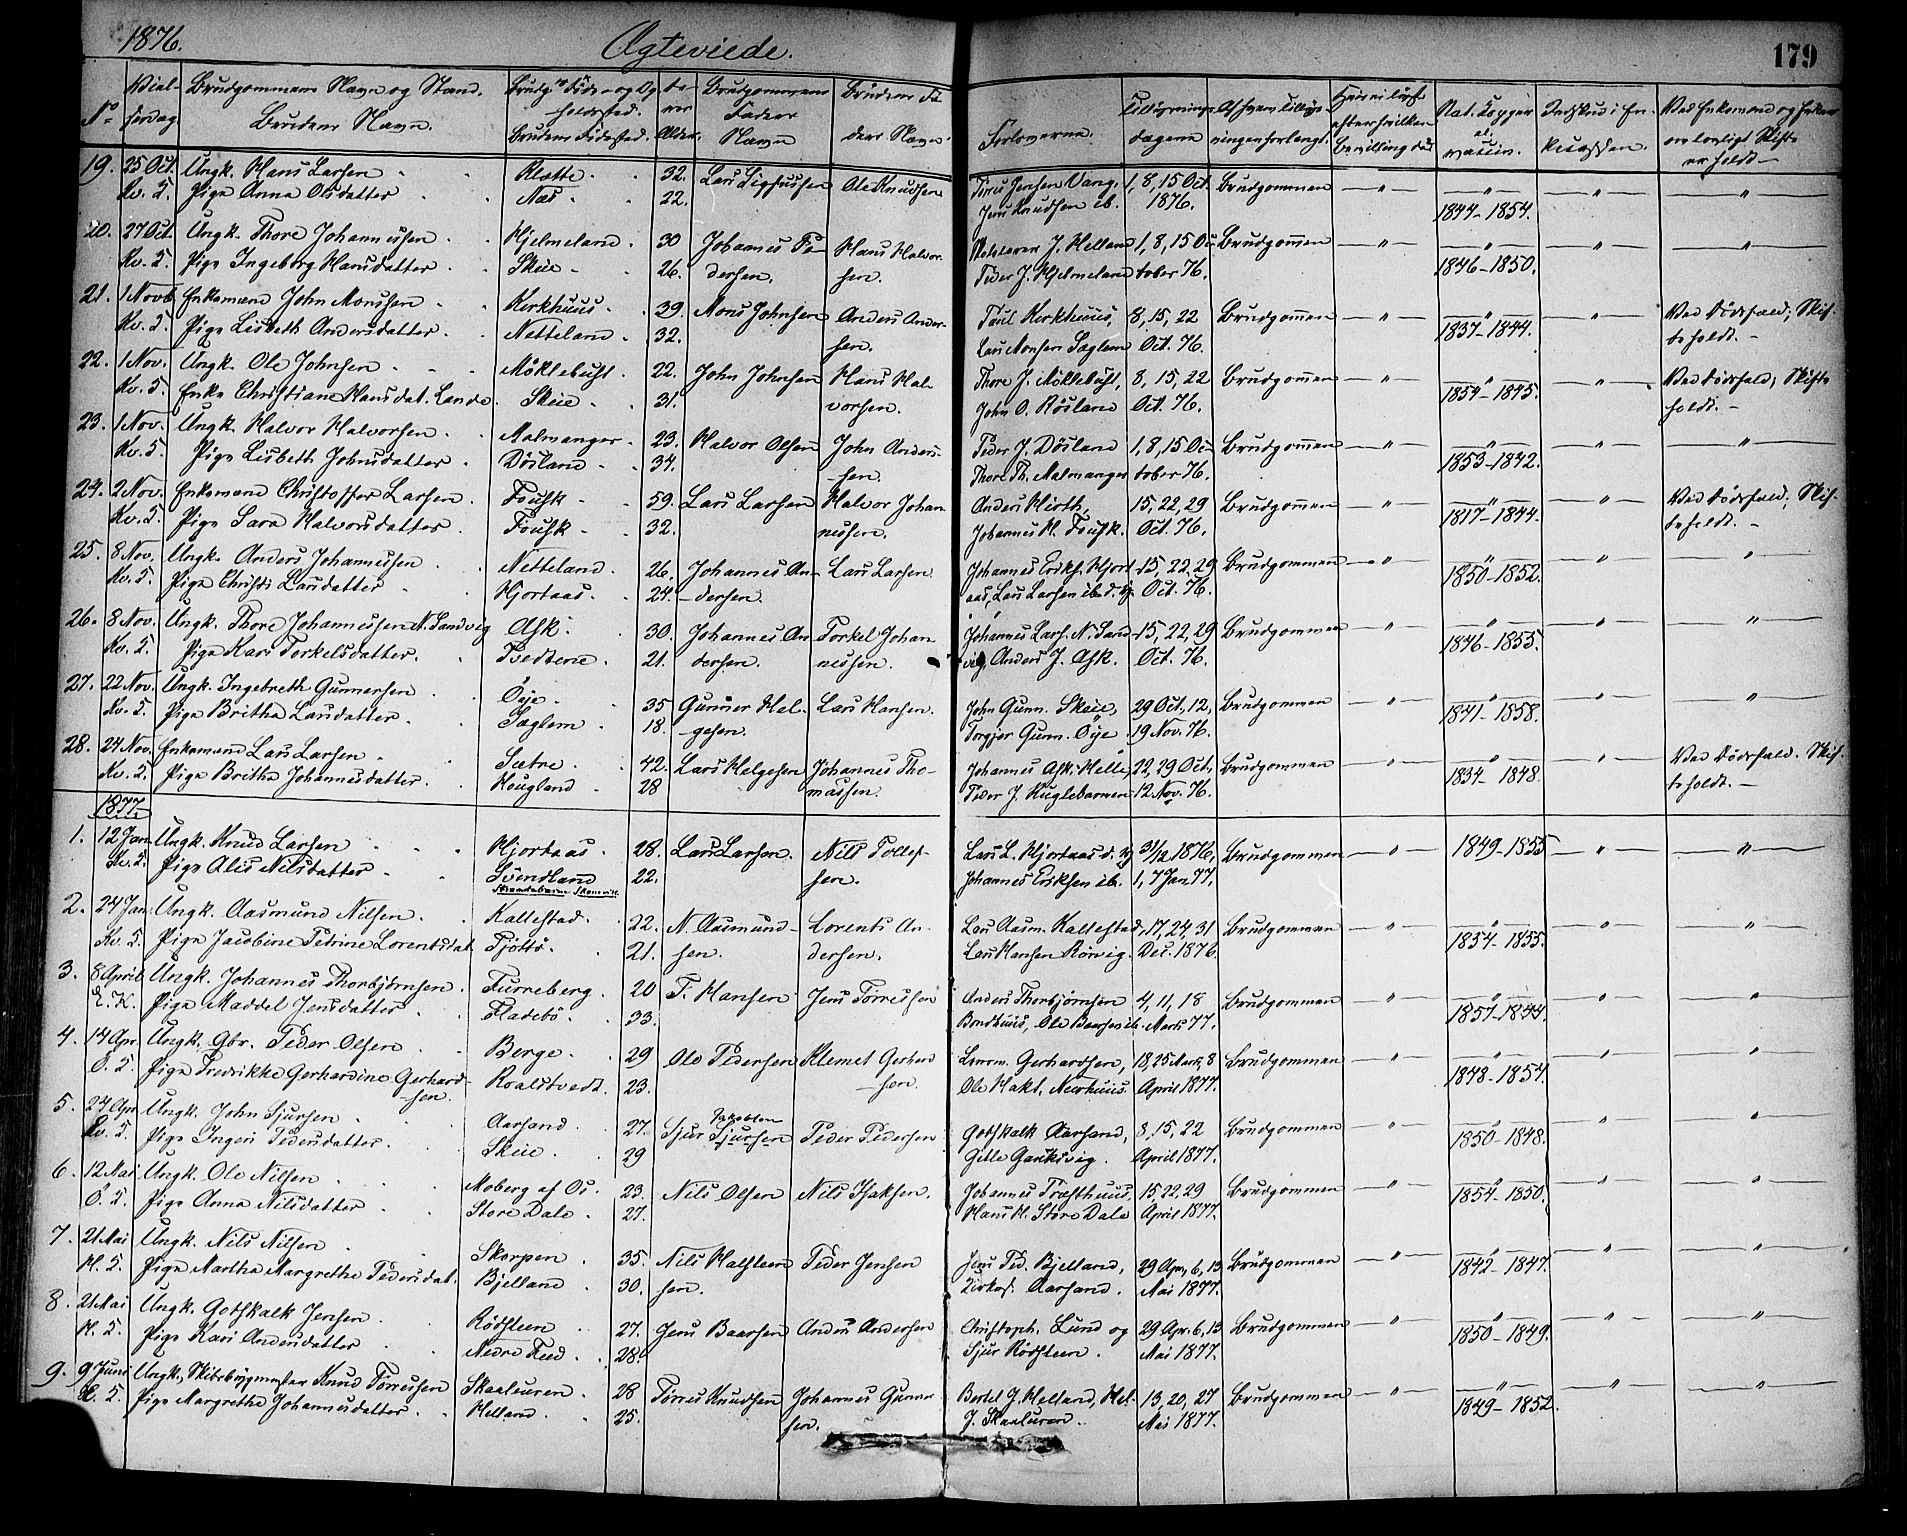 1876. Ægteviede. 179
No Viel-sesdag. Brudgommens Navn og Stand. Brudens Navn. Brudens Fødested. Alder. Brudgommens Fader Navn Brudens Fader Navn. Forloverne. Tillysnings dagene Nat. Kopper el. vaccin.
19. 25 Oct. Ungk. Hans Larsen Klette. 32. Lars Sigfussen Ole Knudsen Tørris Jensen Vang. 1, 8, 15 Oct. Brudgommen — " — — " — — " — "
Kv. S. Pige Anna Olsdatter Næs. 22. Jens Knudsen ib. 1876. 1844-1854.
20. 27 Oct. Ungk. Thore Johannessen Hjelmeland. 30 Johannes Pe- Hans Halvor- J. Helland 1, 8, 15 Oc- Brudgommen — " — — " — — " — "
Kv. S. Pige Ingeborg Hansdatter Skeie 26. dersen. sen. Peder J. Hjelmeland tober 76. 1846-1850.
21. 1 Novb. Enkemand John Monssen Kirkhuus. 39. Mons Johnsen Anders Ander- Kirkhuus, 8, 15, 22 Brudgommen — " — — " — — " — Ved Dødsfald, Skif-
Kv. S. Pige Lisbeth Andersdatter Netteland. 32. sen. Lars Monsen Sæglem Oct. 76. 1837-1844. te holdt.
22. 1 Nov. Ungk. Ole Johnsen Møklebust. 22. John Johnsen Hans Hal- Thore J. Møklebust, 8, 15, 22 Brudgommen — " — — " — — " — Ved Dødsfald, Skifte
Kv. S. Enke Christiane Hansdat. Lande. Skeie 31. vorsen. John O. Røsland Oct. 76. 1854-1845. holdt.
23. 1 Nov. Ungk. Halvor Halvorsen Malmanger. 23. Halvor Olsen John Anders- Peder J. Døsland 1, 8, 15 Oc- Brudgommen — " — — " — — " — "
Kv. S. Pige Lisbeth Johnsdatter Døsland 34. sen. Thore Th. Malmanger tober 76. 1853-1842.
24. 2 Nov. Enkemand Christoffer Larsen. Fousk 59. Lars Larsen Halvor Johan- Anders Hirth, 15, 22, 29 Brudgommen — " — — " — — " — Ved Dødsfald, Skif-
Kv. S. Pige Sara Halvorsdatter Fousk 32. nessen. Johannes H. Fousk. Oct. 76. 1817-1844. te holdt.
25. 8 Nov. Ungk. Anders Johannessen Netteland. 26. Johannes An- Lars Larsen Johannes Eriks. Hjort- 15, 22, 29 Brudgommen — " — — " — — " — "
Kv. S. Pige Christi Larsdatter Hjortaas. 24. dersen. aas, Lars Larsen ib. d. y. Oct. 76. 1850-1852.
26. 8 Nov. Ungk. Thore Johannessen N. Sandvig Ask. 30. Johannes An- Torkel Johan- Johannes Lars. N. Sand- 15, 22, 29 Brudgommen — " — — " — — " — "
Kv. S. Pige Kari Torkelsdatter. Tvedtene. 21. dersen. nessen. vig, Anders J. Ask. Oct. 76. 1846-1855.
27. 22 Nov. Ungk. Ingebreth Gunnersen Øye. 35 Gunner Hel- Lars Hansen. John Gunn. Skeie, 29 Oct, 12, Brudgommen — " — — " — — " — "
Kv. S. Pige Britha Larsdatter. Sæglem. 18. gesen. Torgjer Gunn. Øye 19 Nov. 76. 1841-1858.
28. 24 Nov. Enkemand Lars Larsen Sætre. 42. Lars Helgesen Johannes Tho- Johannes Ask. Helle, 22, 29 Oct, Brudgommen — " — — " — — " — Ved Dødsfald. Skif-
Kv. S. Pige Britha Johannesdatter. Hougland 28 massen. Peder J. Kuglebarmen 12 Nov. 76. 1834-1848. te holdt.
1877.
1. 12 Jan. Ungk. Knud Larsen Hjortaas. 28. Lars Larsen. Nils Tollef- Lars L. Hjortaas d. y. 31/12 1876, Brudgommen — " — 1849-1855 — " — "
Kv. S. Pige Alis Nilsdatter Svendland 22. sen. Johannes Eriksen ib. 1, 7 Jan. 77.
2. 24 Jan. Ungk. Aasmund Nilsen. Kallestad. 22. N. Aasmund- Lorents An- Lars Aasm. Kallestad, 17, 24, 31 Brudgommen — " — — " — — " — "
Kv. S. Pige Jacobine Petrine Lorentsdat. Tjøttø. 21. sen. dersen. Lars Hansen Rørvig. Dec. 1876. 1854-1855.
3. 8 April Ungk. Johannes Thorbjørnsen. Furreberg. 20 T. Hansen Jens Tørressen Anders Thorbjørnsen 4, 11, 18 Brudgommen — " — — " — — " — "
E. K. Pige Maddel Jensdatter Fladebø. 33. Bondhuus, Ole Baarsen ib. Marts 77. 1857-1844.
4. 14 Apr. Ungk. Gbr. Peder Olsen Berge. 29 Ole Pedersen Klemet Gerhard- Gerhardsen, 18, 25 Marts, 8 Brudgommen — " — — " — — " — "
Ø. S. Pige Fredrikke Gerhardine Gerhard- Roalstvedt 23. sen. Ole Hakt. Nerhuus. April 1877. 1848-1854.
sen.
5. 24 Apr. Ungk. John Sjursen Aarsand. 27. Sjur Jakobsen Sjursen Peder Pedersen Gotskalk Aarsand, 8, 15, 22 Brudgommen — " — — " — — " — "
Kv. S. Pige Ingeri Pedersdatter. Skeie. 29 Gitle Gauksvig. April 1877. 1850-1848.
6. 12 Mai Ungk. Ole Nilsen Moberg af Os. 23. Nils Olsen Nils Isaksen. Johannes Træsthuus, 15, 22, 29 Brudgommen — " — — " — — " — "
Ø. S. Pige Anna Nilsdatter Store Dale. 27. Hans H. Store Dale April 1877. 1854-1850.
7. 21 Mai Ungk. Nils Nilsen Skorpen. 35. Nils Halsten- Peder Jensen Jens Ped. Bjelland, 29 Apr, 6, 13 Brudgommen — " — — " — — " — "
H. S. Pige Martha Margrethe Pedersdat. Bjelland 30. sen. Kirkes. Aarsand. Mai 1877. 1842-1847.
8. 21 Mai Ungk. Gotskalk Jensen. Rødsteen 27. Jens Baarsen Anders Andersen Christoph. Lund og 29 Apr. 6, 13 Brudgommen — " — — " — — " — "
H. S. Pige Kari Andersdatter Nedre Fed. 28. Sjur Rødsteen. Mai 1877. 1850-1849.
9. 9 Juni Ungk., Skibsbygmester Knud Tørressen Skaaluren. 28 Tørres Knudsen Johannes Gunner- Bertel J. Helland, Hel- 13, 20, 27 Brudgommen — " — — " — — " — "
S. Pige Margrethe Johannesdatter. Helland. 25. sen. J. Skaaluren. Mai 1877. 1849-1852.